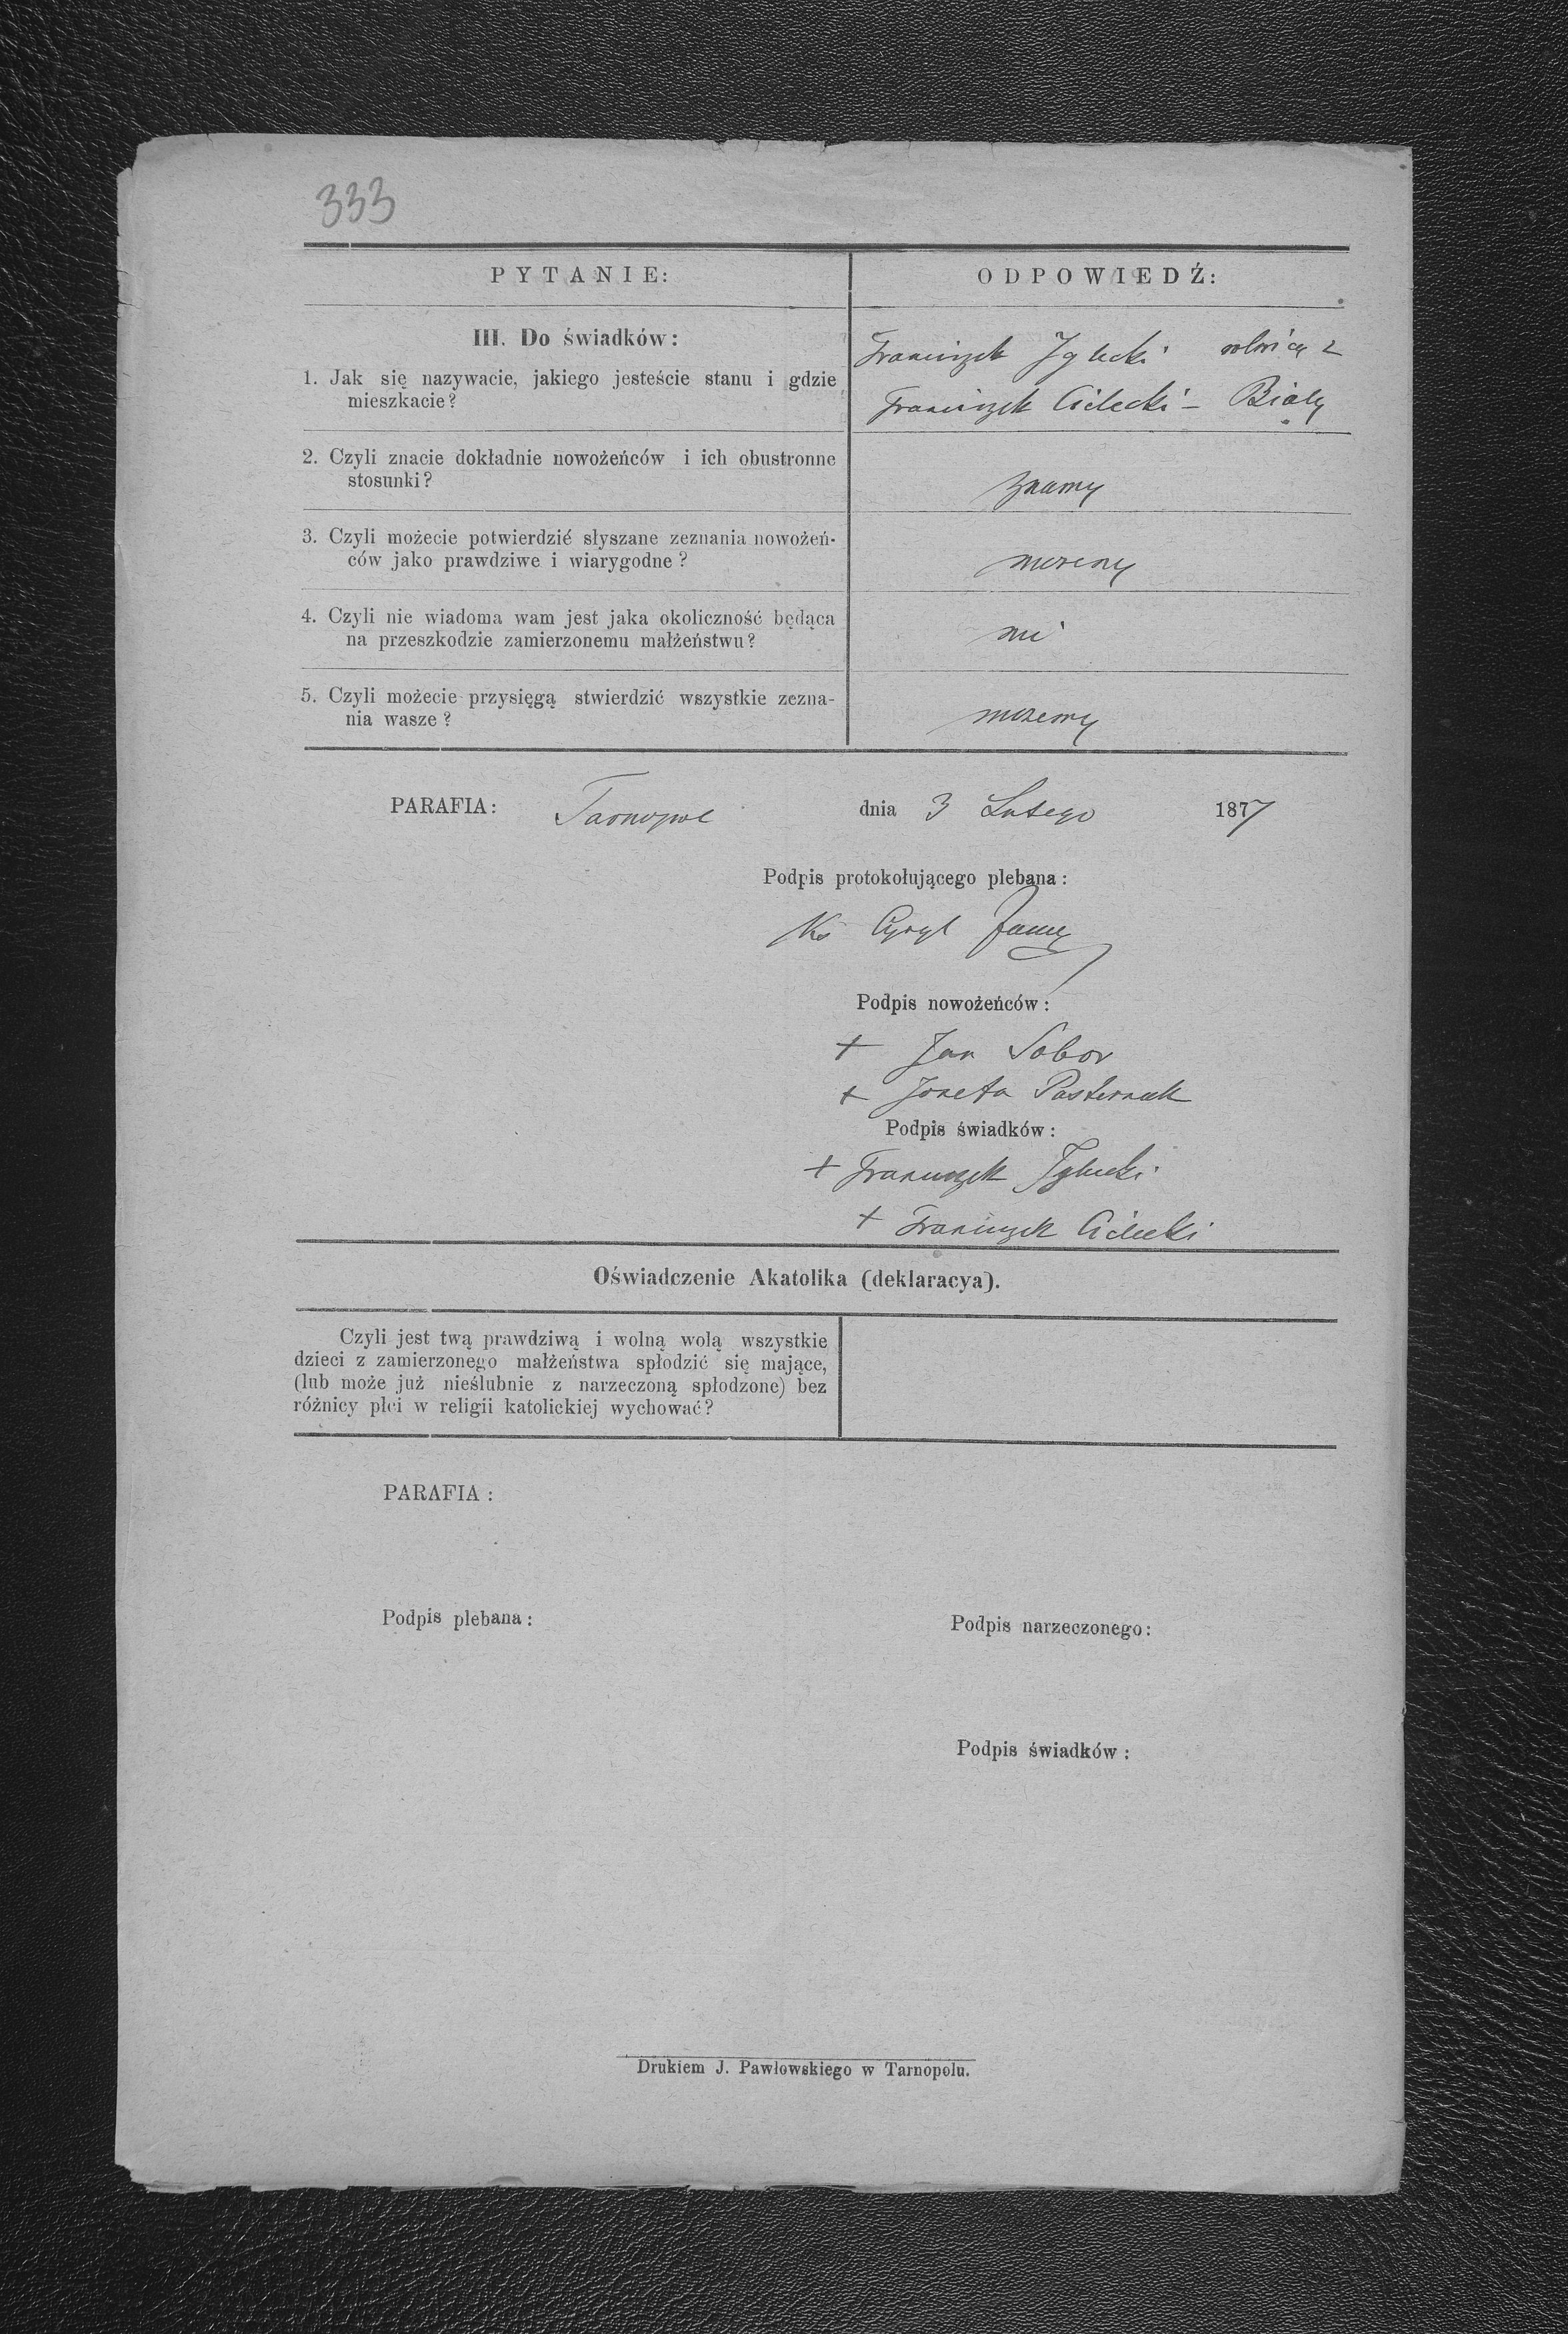 333
PYTANIE:
ODPOWIEDŹ:
III. Do świadków:
1. Jak się nazywacie, jakiego jesteście stanu i gdzie
mieszkacie?
Franciszek rolnicy z
Franciszek Cidecki – Biały
2. Czyli znacie dokładnie nowożeńców i ich obustronne
stosunki?
znamy
3. Czyli możecie potwierdzić słyszane zeznania nowożeń-
ców jako prawdziwe i wiarygodne?
możemy
4. Czyli nie wiadoma wam jest jaka okoliczność będąca
na przeszkodzie zamierzonemu małżeństwu?
nie
5. Czyli możecie przysięgą stwierdzić wszystkie zezna-
nia wasze?
możemy
PARAFIA: Tarnopol dnia 3 Lutego 1877
Podpis protokołującego plebana:
Ks Cyryl
Podpis nowożeńców:
+ Jan Sobor
+ Jozefa Pasternak
Podpis świadków:
+ Franciszek
+ Franciszek Cidecki
Oświadczenie Akatolika (deklaracya).
Czyli jest twą prawdziwą i wolną wolą wszystkie
dzieci z zamierzonego małżeństwa spłodzić się mające,
(lub może już nieślubnie z narzeczoną spłodzone) bez
różnicy płci w religii katolickiej wychować?
PARAFIA:
Podpis plebana:
Podpis narzeczonego:
Podpis świadków:
Drukiem J. Pawłowskiego w Tarnopolu.